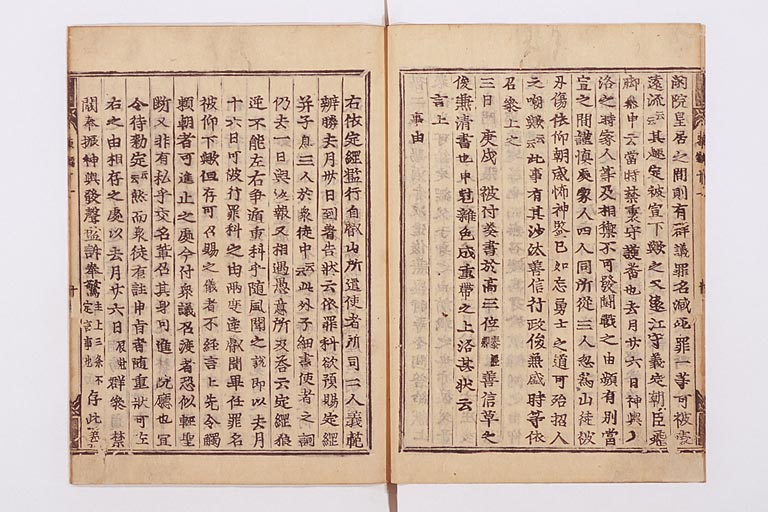 院皇居之間則有群議罪名減死罪一等可被處
遠流云云其趣定被宣下歟之又遠江守義定朝臣飛
脚參申云當時禁裏守護番也去月廿六日神輿入
洛之時家人等及相禦不可發鬪戰之由頗有別當
宣之間謹愼之處家人四人同所從三人忽爲山徒被
刃傷依仰朝威怖神鑒已如忘勇士之道可殆招人
之嘲歟云云此事有其沙汰善信行政俊兼盛時等依
召參上之
三日 庚戌 被付奏書於高三位泰經善信草之
俊兼清書也申尅雜色成重帶之上洛其狀云
言上
事由
右依定綱濫行自叡山所遣使者所司二人義範
辨勝去月廿日到着告狀云依罪科欲預賜定綱
并子息三人於衆徒中云云此外子細畫使者之詞
仍去一日與返報又相過愚意所及吞云定綱狼
逆不能左右爭遁重科乎隨風聞之說卽以去月
十六日可被行罪科之由兩度達叡聞畢任罪名
被仰下歟但存可召賜之儀者不經言上先令觸
賴朝者可進止之處今付衆議召渡者恐似輕聖
斷又非有私乎交名輩召其身可進院廳也宜
令待勅定云云然而衆徒者詿申旨者隨重狀可左
右之由相存之處以去月廿六日群參禁
闕奉振神輿發聲訴奉驚